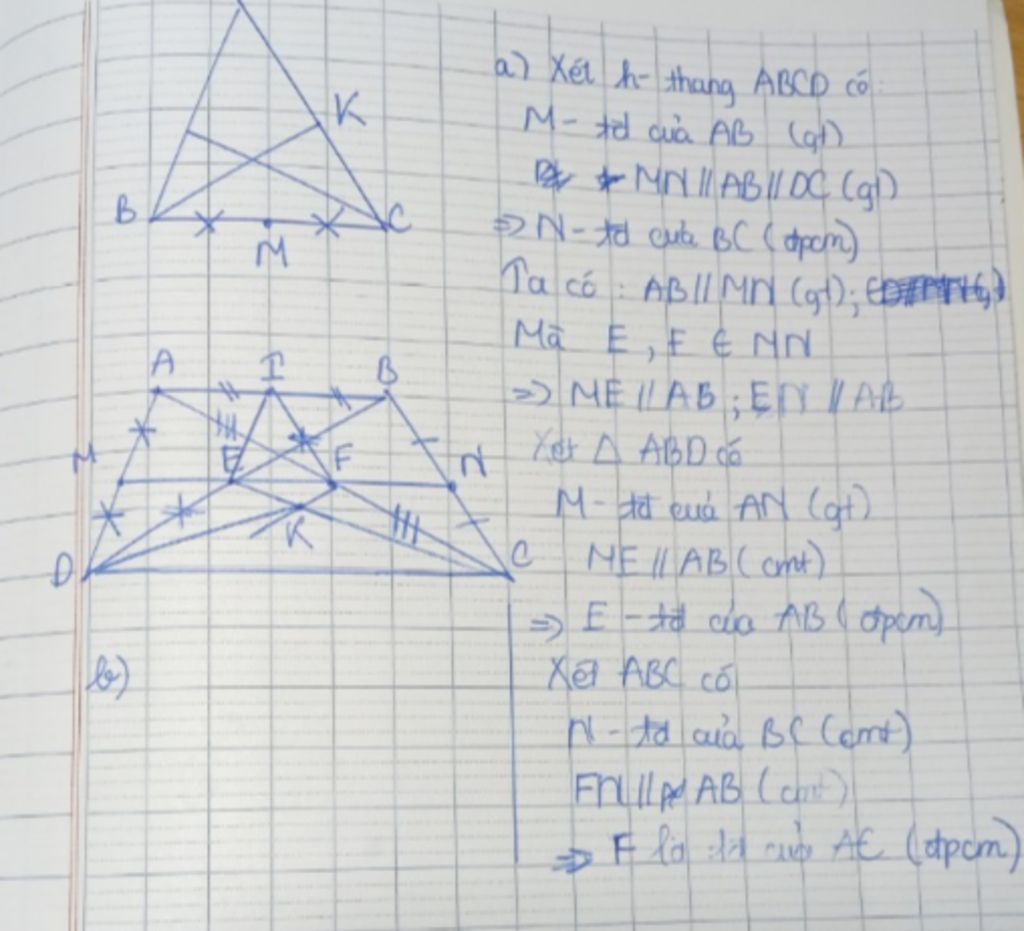 K
B
C
M
a) Xét h- thang ABCD có:
M- tđ của AB (gt)
MN // AB // DC (gt)
=> N- tđ của BC (đpcm)
Ta có : AB // MN (gt);
Mà E, F ∈ MN
=> ME // AB ; EN // AB
Xét Δ ABD có
M- tđ của AN (gt)
ME // AB (cmt)
=> E - tđ của AB (đpcm)
Xét ABC có
N- tđ của BC (cmt)
FN // AB (cmt)
=> F là tđ của AC (đpcm)
A I B
M E F N
K
D C
b)